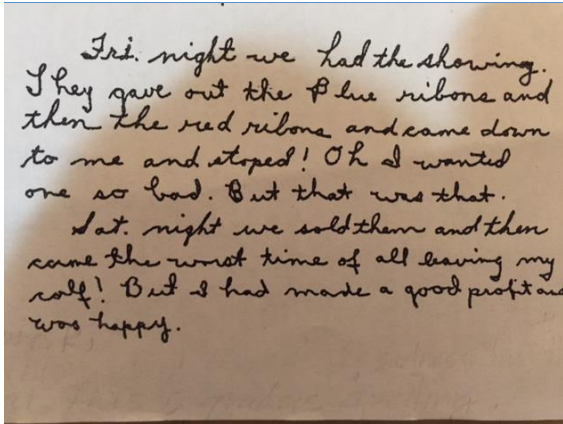 Fri. night we had the showing.
They gave out the Blue ribons and
then the red ribons and came down
to me and stoped! Oh I wanted
one so bad. But that was that.
Sat. night we sold them and then
came the worst time of all leaving my
calf! But I had made a good profit and
was happy.